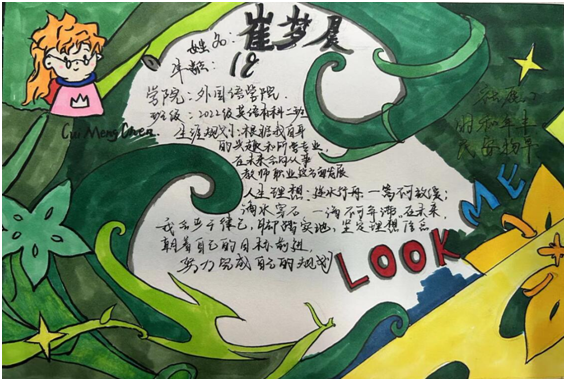 姓名：崔梦晨
年龄：18
学院：外国语学院
班级：2022级英语本科二班
生涯规划：根据我自身
的兴趣和所学专业，
在未来会向从事
教师职业这方面发展
人生理想：逆水行舟，一篙不可放缓；
滴水穿石，一滴不可弃滞。在未来，
我会严于律己，脚踏实地，坚定理想信念
朝着自己的目标前进，
努力完成自己的规划
Cui Meng Chen
LOOK ME